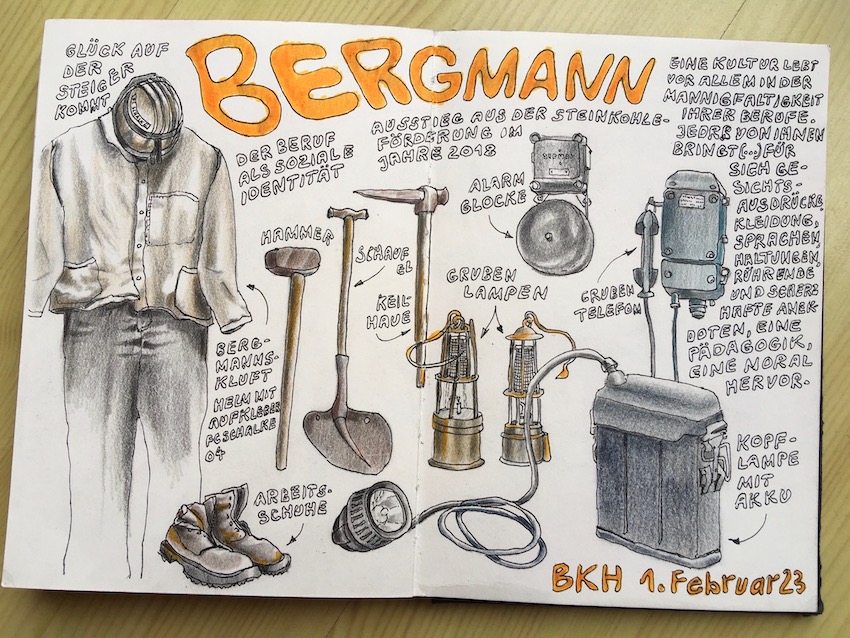 GLÜCK AUF
DER
STEIGER
KOMMT
BERGMANN
DER BERUF
ALS SOZIALE
IDENTITÄT
AUSSTIEG AUS DER STEINKOHLE-
FÖRDERUNG IM
JAHRE 2018
EINE KULTUR LEBT
VOR ALLEM IN DER
MANNIGFALTIGKEIT
IHRER BERUFE.
JEDRE VON IHNEN
BRINGT (...) FÜR
SICH GE-
SICHTS-
AUSDRÜCKE,
KLEIDUNG,
SPRACHEN,
HALTUNGEN,
RÜHRENDE
UND SCHERZ
HAFTE ANEK
DOTEN, EINE
PÄDAGOGIK,
EINE MORAL
HERVOR.
ALARM
GLOCKE
HAMMER
SCHAUF
EL
KEIL-
HAUE
GRUBEN
LAMPEN
GRUBEN
TELEFON
BERG-
MANNS-
KLUFT
HELM MIT
AUFKLEBER
FC SCHALKE
04
ARBEITS-
SCHUHE
KOPF-
LAMPE
MIT
AKKU
BKH 1. Februar 23